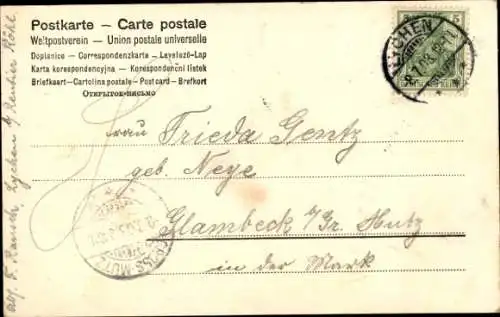 Postkarte – Carte postale
Weltpostverein – Union postale universelle
Dopisnice – Correspondenzkarte – Levelező-Lap
Karta korespondencyjna – Korespondenční listek
Briefkaart – Cartolina postale – Post card – Brefkort
Открытое письмо
5 5
LYCHEN
Frau Frieda Gentz
geb. Neye
Glambeck b/Gr. Mutz
in der Mark
GROSS-MUTZ
Abs. F. Rausch, Lychen